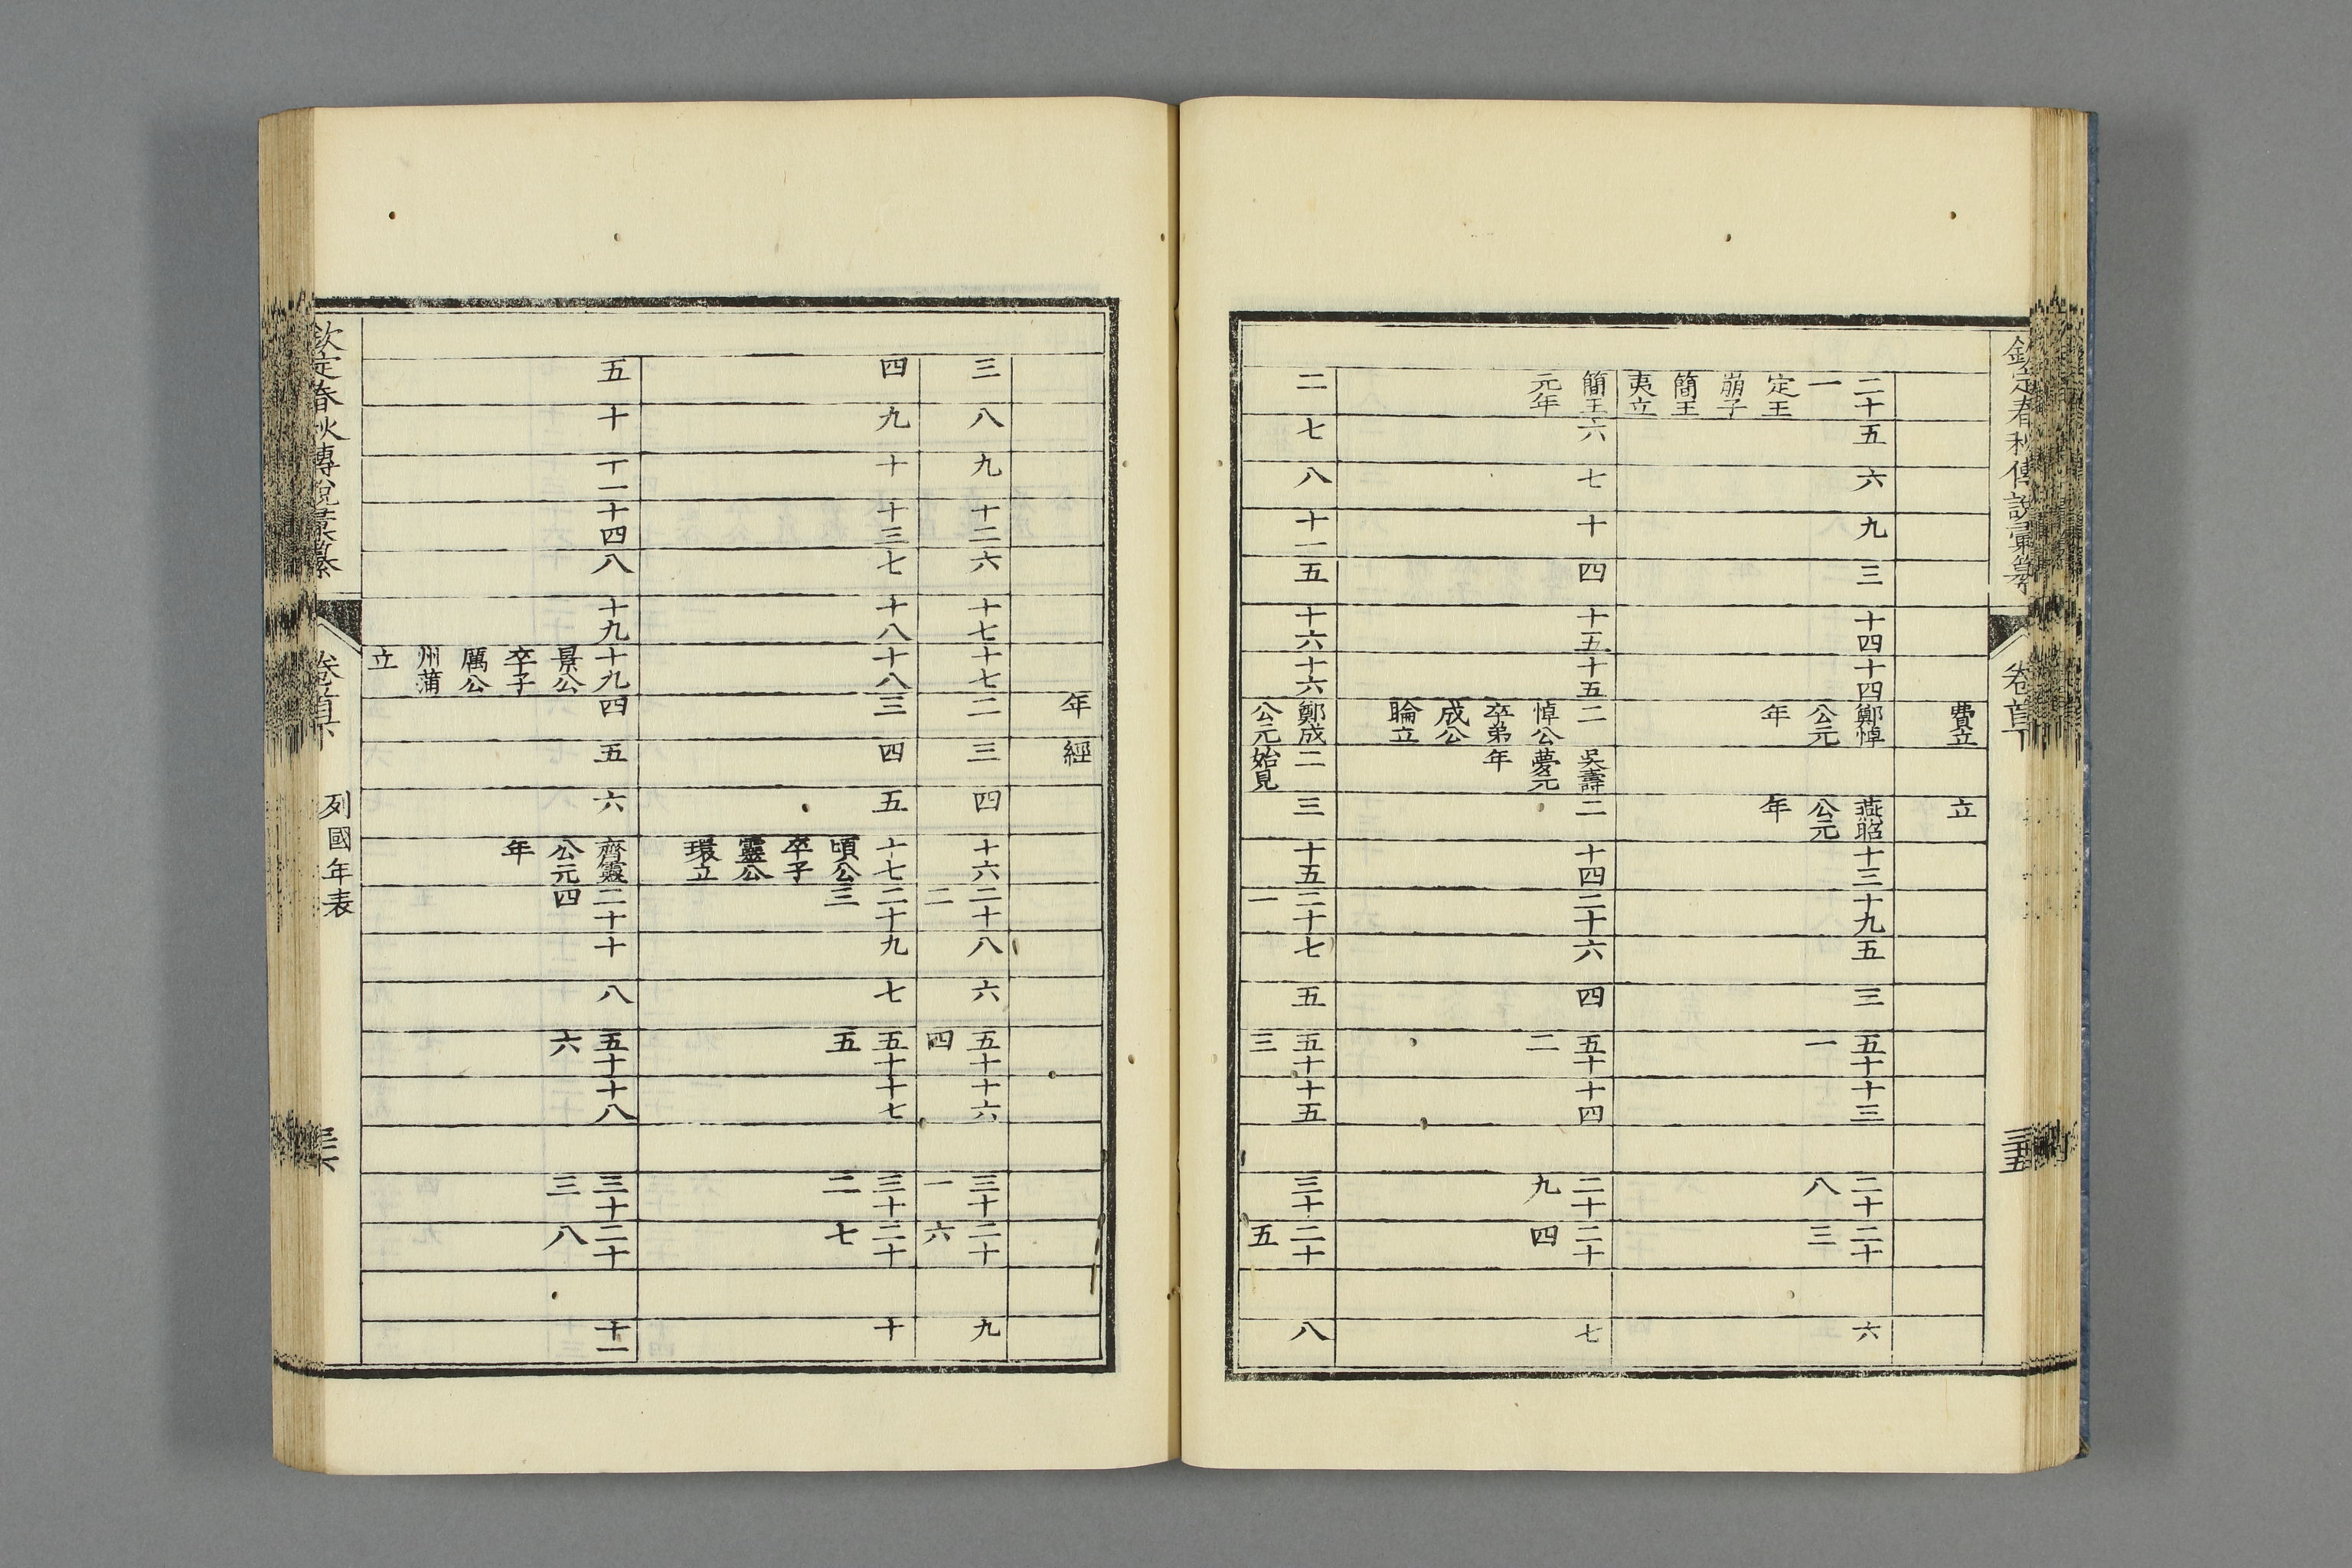 欽定春秋傳說彙纂 卷首下 三十五
費立 立
二十 五 六 九 三 十四 十四 鄭悼 燕昭 十三 十九 五 三 五十 十三 二十 二十 六
一 公元 公元 一 八 三
定王 年 年
崩子
簡王
夷立
簡王 六 七 十 四 十五 十五 二 吳壽 二 十四 二十 六 四 五十 十四 二十 二十 七
元年 悼公 夢元 二 九 四
卒弟 年
成公
睔立
二 七 八 十一 五 十六 十六 鄭成 二 三 十五 二十 七 五 五十 十五 三十 二十 八
公元 始見 一 三 五
年 經
三 八 九 十二 六 十七 十七 二 三 四 十六 二十 八 六 五十 十六 三十 二十 九
二 四 一 六
四 九 十 十三 七 十八 十八 三 四 五 十七 二十 九 七 五十 十七 三十 二十 十
頃公 三 五 二 七
卒子
靈公
環立
五 十 十一 十四 八 十九 十九 四 五 六 齊靈 二十 十 八 五十 十八 三十 二十 十一
景公 公元 四 六 三 八
卒子 年
厲公
州蒲
立
欽定春秋傳說彙纂 卷首下 列國年表